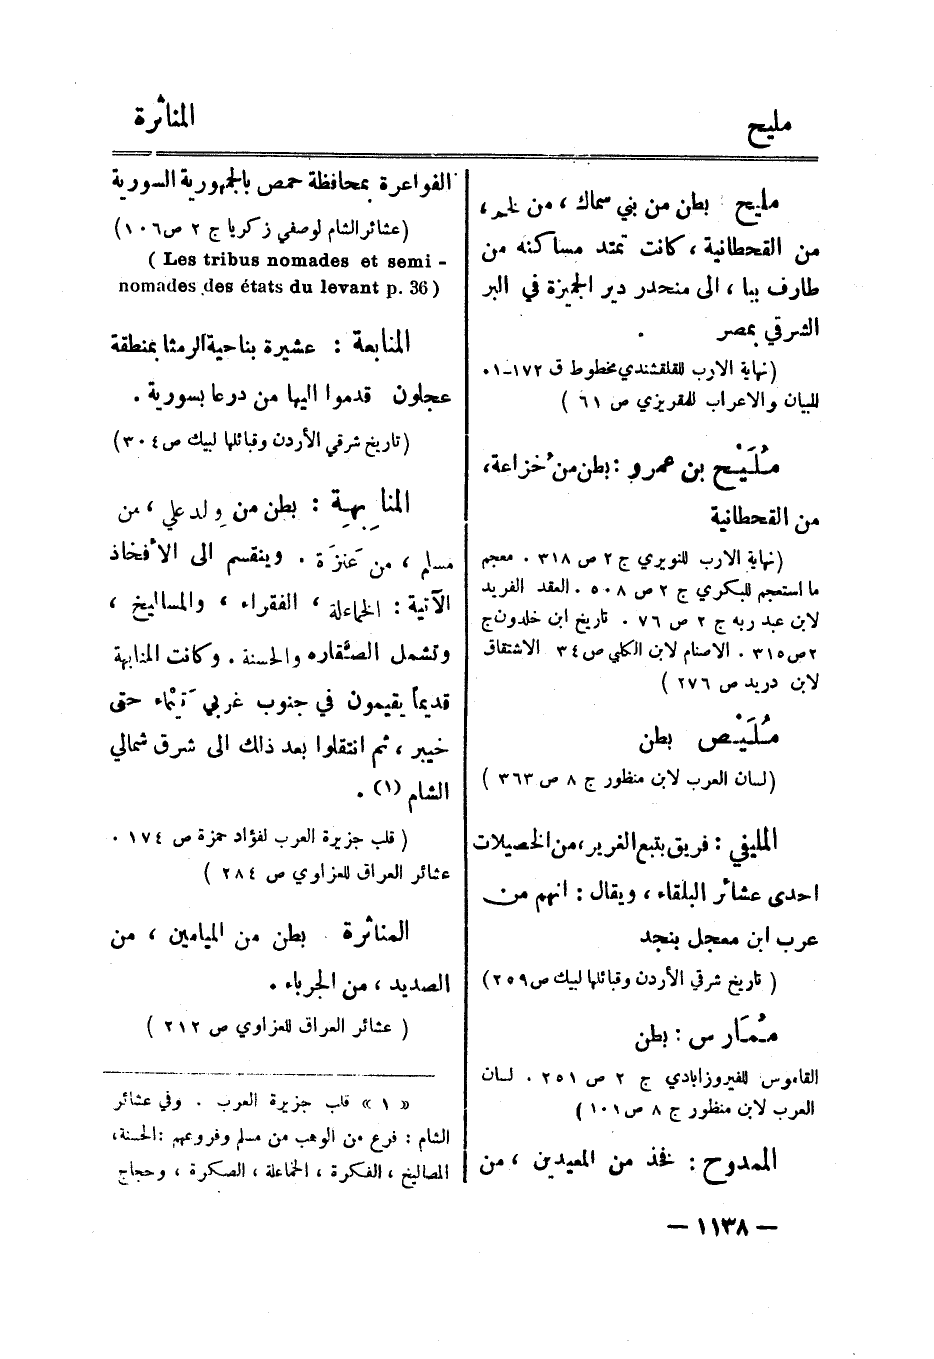 مليح
المناثرة
مليح بطن من بني سماك ، من لخم ،
من القحطانية ، كانت تمتد مساكنه من
طارف ببا ، الى منحدر دير الجميزة في البر
الشرقي بمصر .
(نهاية الارب للقلقشندي مخطوط ق ١٧٢-٠١
للبيان والاعراب للمقريزي ص ٦١ )
مُلَيْح بن عمرو : بطن من خُزاعة ،
من القحطانية
(نهاية الارب للنويري ج ٢ ص ٣١٨ . معجم
ما استعجم للبكري ج ٢ ص ٥٠٨ . العقد الفريد
لابن عبد ربه ج ٢ ص ٧٦ . تاريخ ابن خلدون ج
٢ ص ٣١٥ . الاصنام لابن الكلبي ص ٣٤ الاشتقاق
لابن دريد ص ٢٧٦ )
مُلَيْص بطن
(لسان العرب لابن منظور ج ٨ ص ٣٦٣ )
المليفي : فريق يتبع الغرير ، من الخصيلات
احدى عشائر البلقاء ، ويقال : انهم من
عرب ابن معجل بنجد
( تاريخ شرقي الأردن وقبائلها لبيك ص ٢٥٩)
مُمَارس : بطن
القاموس للفيروزابادي ج ٢ ص ٢٥١ . لسان
العرب لابن منظور ج ٨ ص ١٠١ )
الممدوح : فخذ من المعيدين ، من
الفواعرة بمحافظة حمص بالجمهورية السورية
(عشائر الشام لوصفي زكريا ج ٢ ص ١٠٦)
( Les tribus nomades et semi -
nomades des états du levant p. 36 )
المنابعة : عشيرة بناحية الرمثا بمنطقة
عجلون قدموا اليها من درعا بسورية .
(تاريخ شرقي الأردن وقبائلها لبيك ص ٣٠٤)
المنابِهة : بطن من ولد علي ، من
مسلم ، من عَنَزَة . وينقسم الى الأفخاذ
الآتية : الجماعلة ، الفقراء ، والمساليخ ،
وتشمل الصَّقاره والحسنة . وكانت المنابهة
قديماً يقيمون في جنوب غربي تَيْماء حتى
خيبر ، ثم انتقلوا بعد ذلك الى شرق شمالي
الشام (١) .
( قلب جزيرة العرب لفؤاد حمزة ص ١٧٤ .
عشائر العراق للعزاوي ص ٢٨٤ )
المناثرة بطن من الميامين ، من
الصديد ، من الجرباء .
( عشائر العراق للعزاوي ص ٢١٢ )
« ١ » قلب جزيرة العرب . وفي عشائر
الشام : فرع من الوهب من مسلم وفروعهم : الحسنة ،
المصاليخ ، الفكرة ، الجماعلة ، الصكرة ، وحجاج
— ١١٣٨ —